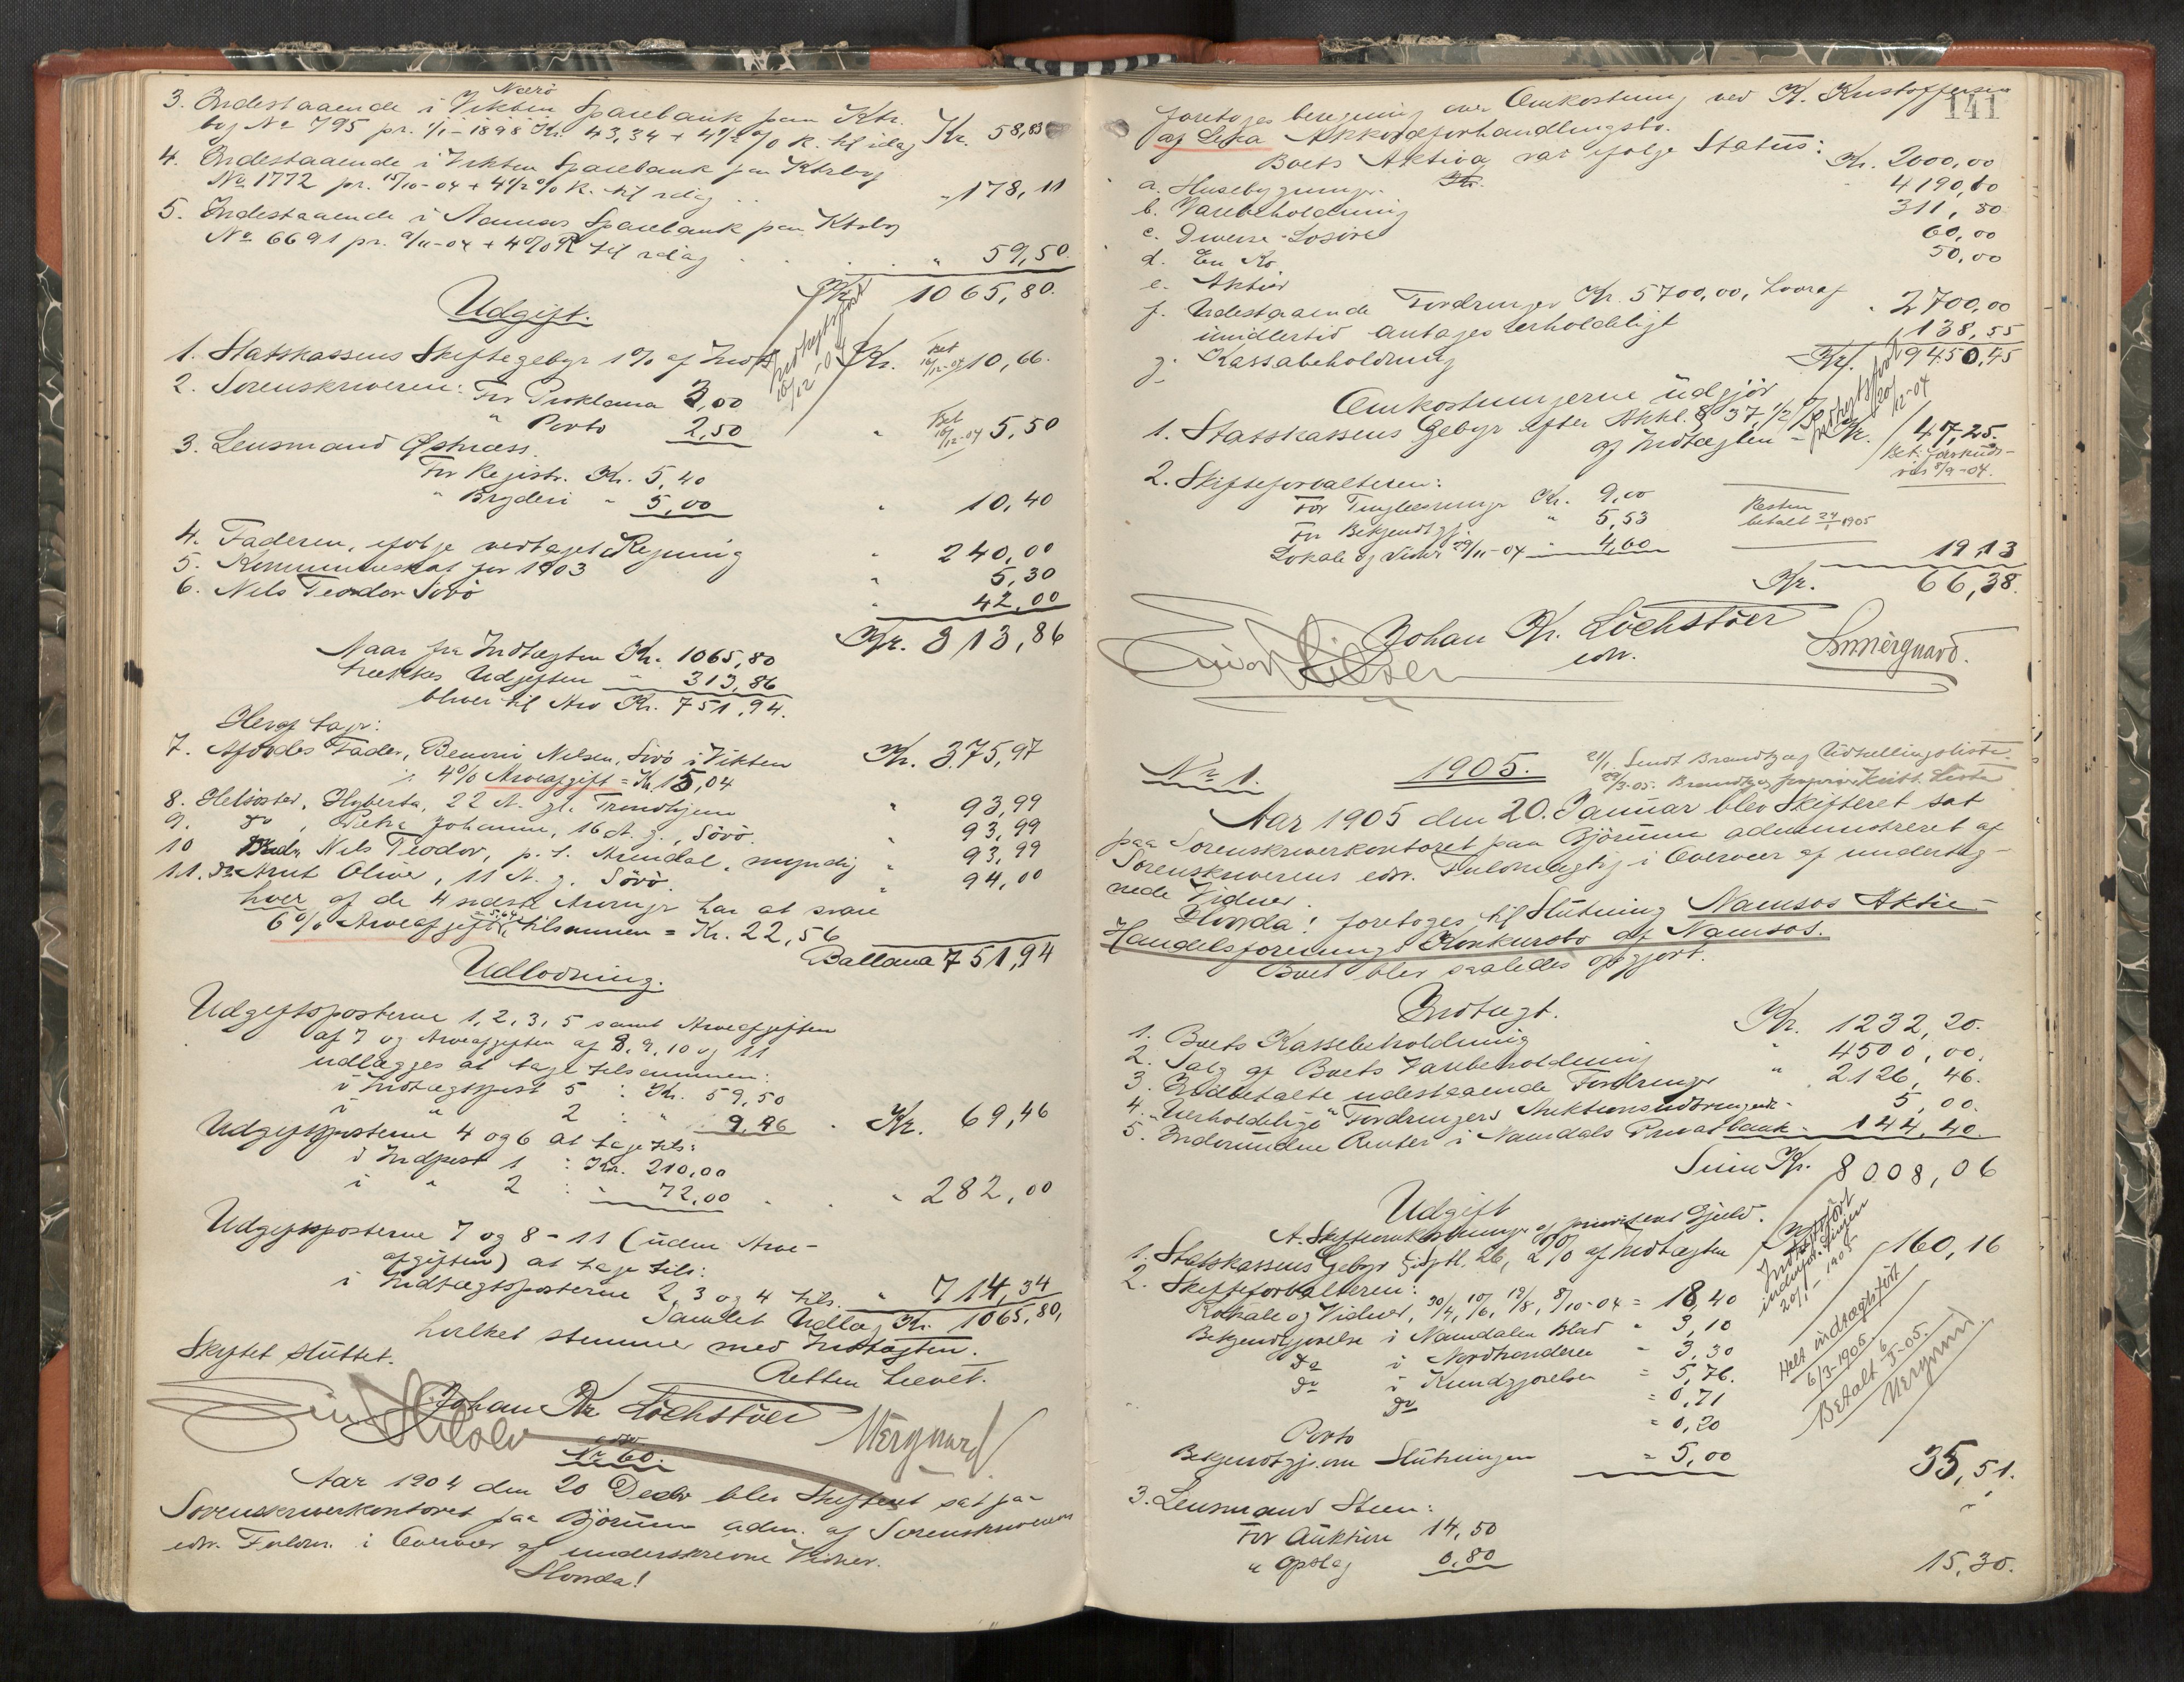 Nærö
3. Indestaaende i Vikten Sparebank paa Ktr.
bog No 795 pr. 1/1-1898 Kr. 43,34 + 4 1/2 % R. til idag Kr. 58,83
4. Indestaaende i Vikten Sparebank paa Ktrbog
No 1772 pr. 15/10-04 + 4 1/2 % R. til idag . . " 178,11
5. Indestaaende i Namsos Sparebank paa Ktrbog
No 6691 pr. 9/11-04 + 4 % R til idag . . . . " 59,50.
Kr. 1065,80.
Udgift.
indtægtsført
16/12-04
1. Statskassens Skiftegebyr 1% af Indt. Kr. Bet 16/12-04 10,66.
2. Sorenskriveren: For Proklama 3,00
" Porto 2,50 " Bet 16/12-04 5,50
3. Lensmand Østnæss.
For Registr. Kr. 5,40
" Bryderi " 5,00 " 10,40
4. Faderen, ifølge vedtaget Regning " 240,00
5. Kommuneskat for 1903 " 5,30
6. Nils Teodor Sövö " 42,00
Kr. 313,86
Naar fra Indtægten Kr. 1065,80
trækkes Udgiften " 313,86
bliver til Arv Kr. 751,94.
Heraf tager:
7. Afdødes Fader, Benoni Nilsen, Sövö i Vikten Kr. 375,97
4% Arveafgift = Kr. 15,04
8. Helsøster, Hyberta, 22 A. gl. Trondhjem " 93,99
9. do , Petra Johanne, 16 A. g., Sövö. " 93,99
10 Brdr. Nils Teodor, p. t. Arendal, myndig " 93,99
11. do Arnt Oliver, 11 A. g. Sövö. " 94,00
hver af de 4 sidste Arvinger har at svare
6% Arveafgift = 5,64, tilsammen = Kr. 22,56
Ballance 751,94
Udlodning.
Udgiftsposterne 1, 2, 3, 5 samt Arveafgiften
af 7 og Arveafgiften af 8, 9, 10 og 11
udlægges at tage tilsammen:
i Indtægtspost 5 : Kr. 59,50
i " 2 : " 9,96 . Kr. 69,46
Udgiftsposterne 4 og 6 at tage tils:
i Indpost 1 : Kr. 210,00
i " 2 : " 72,00 . . " 282,00
Udgiftsposterne 7 og 8 - 11 (uden Arve-
afgiften) at tage tils:
i Indtægtsposterne 2, 3 og 4 tils. " 714,34
Samlet Udlæg Kr. 1065,80,
hvilket stemmer med Indtægten.
Skiftet sluttet.
Retten hævet.
Johan Kr. Löchstöer
No 60.
Aar 1904 den 20 Decbr blev Skifteret sat paa
Sorenskriverkontoret paa Björum adm. af Sorenskriverens
edv. Fuldm. i Overvær af underskrevne Vidner.
Hvorda!
141
foretoges beregning over Omkostning ved K. Kristoffersen
af Leka Akkordforhandlingsbo.
Boets Aktiva var ifølge Status:
a. Husebygninger Kr. Kr. 2000,00
b. Varebeholdning 4190,00
c. Diverse Løsøre 311,50
d. En Ko 60,00
e. Aktier 50,00
f. Udestaaende Fordringer Kr. 5700,00, hvoraf
imidlertid antages erholdeligt " 2700,00
g. Kassabeholdning 138,55
Kr. 9450,45
Omkostningerne udgjør
indtægtsført
20/12-04
1. Statskassens Gebyr efter Akkl. § 37, 1/2 %
af Indtægten = Kr. 47,25.
Bet. forskuds-
vis 8/9-04.
2. Skifteforvalteren:
For Tinglæsninger Kr. 9,00
For Bekjendtgj. " 5,53
Lokale og Vidner 29/11-04 " 4,60
Resten
betalt 24/1 1905
19,13
Kr. 66,38.
Johan Kr. Löchstöer
edv.
No 1. 1905.
21/1. Sendt Brandtzæg Udtællingsliste.
Aar 1905 den 20. Januar blev Skifteret sat
paa Sorenskriverkontoret paa Björum administreret af
Sorenskriverens edv. Fuldmægtig i Overvær af underteg-
nede Vidner.
Hvorda! foretoges til Slutning Namsos Aktie-
Handelsforenings Konkursbo af Namsos.
Boet blev saaledes opgjort.
Indtægt.
1. Boets Kassebeholdning Kr. 1232,20.
2. Salg af Boets Varebeholdning " 4500,00.
3. Indbetalte udestaaende Fordringer " 2126,46.
4. "Uerholdelige" Fordringers Auktionsudbringende 5,00.
5. Indvundne Renter i Namdals Privatbank - 144,40.
Sum Kr. 8008,06
Udgift
A. Skifteomkostninger og priviligeret Gjæld.
1. Statskassens Gebyr Sptl. 26, 2% af Indtægten 160,16
20/1-1905
2. Skifteforvalteren:
Lokale og Vidner, 30/4, 10/6, 19/8, 8/10-04 = 18,40
Bekjendtgjørelse i Namdalens Blad " 3,10
do i Nordtrønderen = 3,30
do i Kundgjørelser = 5,76.
do = 0,71
Porto = 0,20
Bekjendtgj. om Slutningen = 5,00
Helt indtægtsført
6/3-1905.
Betalt 6/3-05.
35,51.
3. Lensmand Steen:
For Auktion 14,50
" Opslag 0,80
15,30.